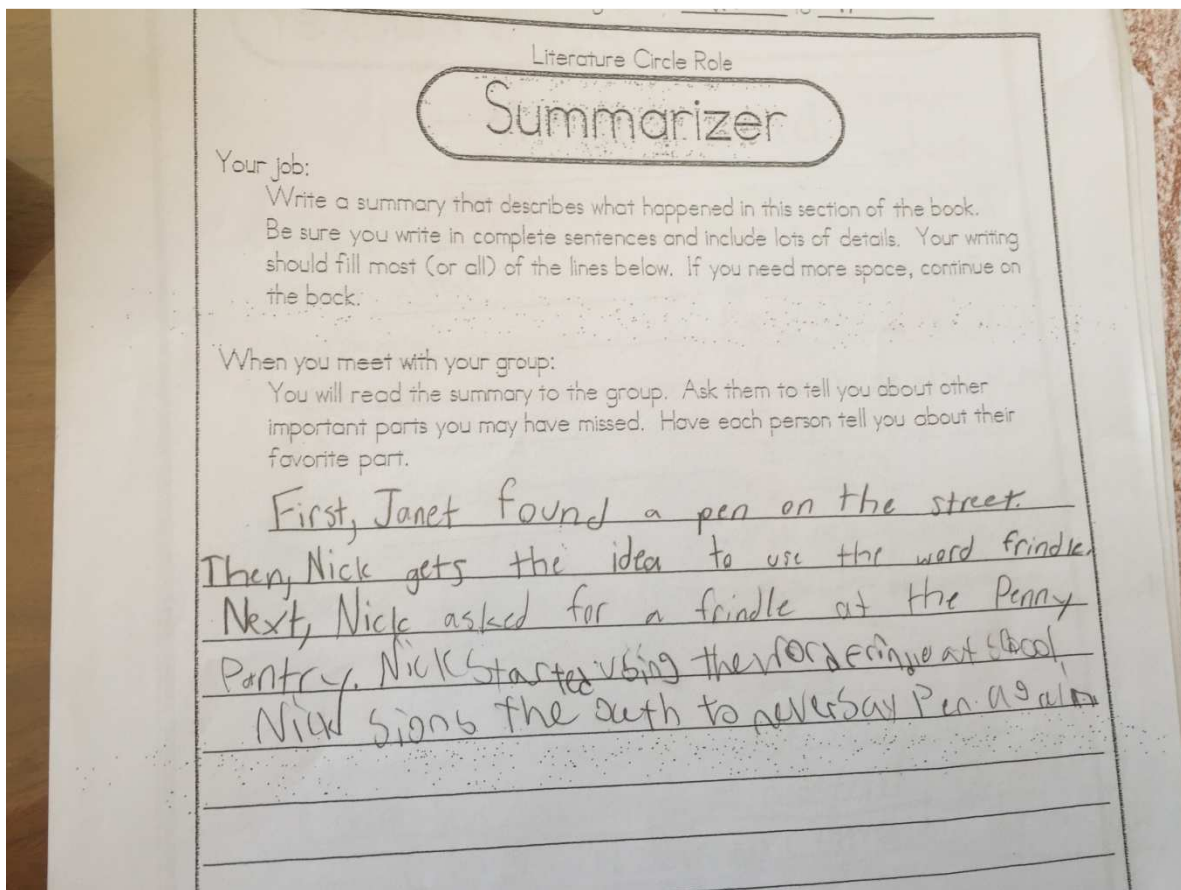 Literature Circle Role
Summarizer
Your job:
Write a summary that describes what happened in this section of the book.
Be sure you write in complete sentences and include lots of details. Your writing
should fill most (or all) of the lines below. If you need more space, continue on
the back.
When you meet with your group:
You will read the summary to the group. Ask them to tell you about other
important parts you may have missed. Have each person tell you about their
favorite part.
First, Janet found a pen on the street.
Then, Nick gets the idea to use the word frindle.
Next, Nick asked for a frindle at the Penny
Pantry. Nick started using the word at
Nick signs the oath to never say Pen again